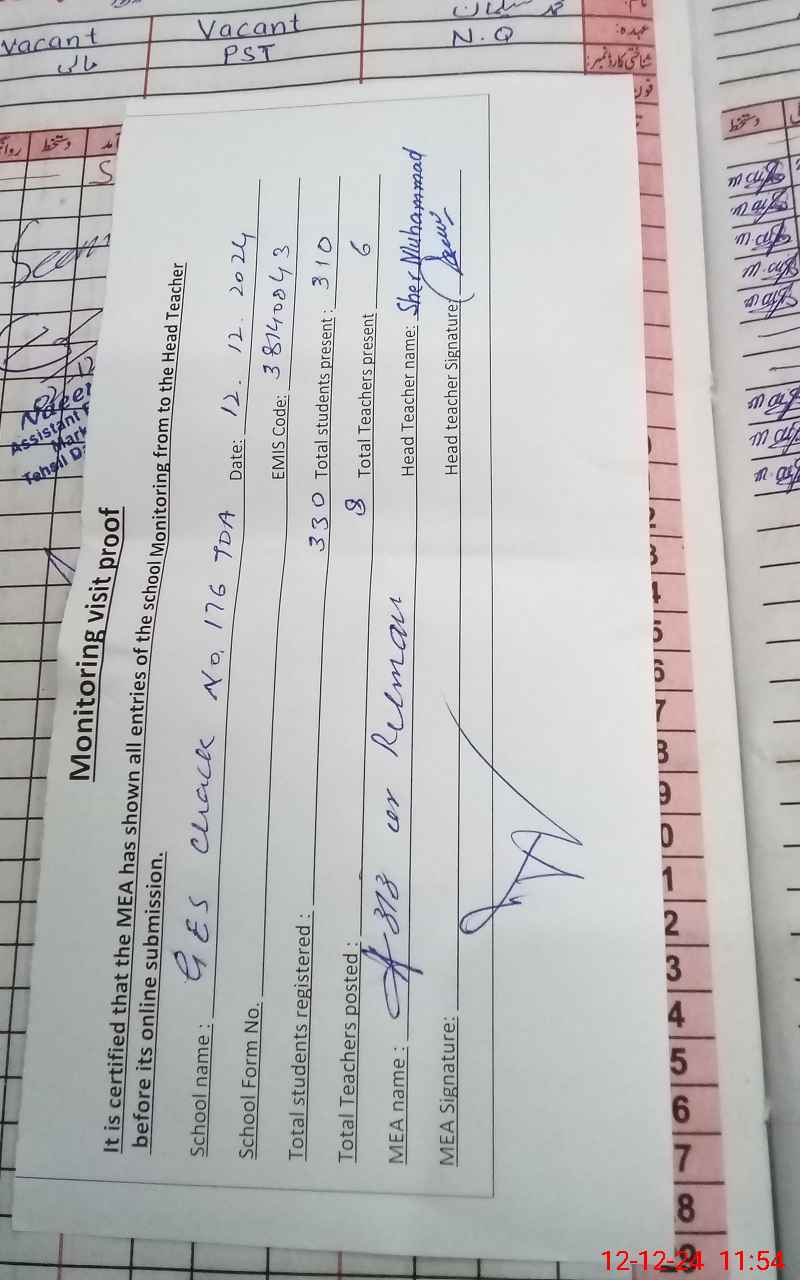 Vacant Vacant
PST N.Q عہدہ:
مالی شناختی کارڈ نمبر:
دستخط
Assistant
Tehsil D
Monitoring visit proof
It is certified that the MEA has shown all entries of the school Monitoring from to the Head Teacher
before its online submission.
School name : GES Chack No. 176 TDA Date: 12.12.2024
School Form No. EMIS Code: 38140843
Total students registered : 330 Total students present : 310
Total Teachers posted : 8 Total Teachers present 6
MEA name : Rehman Head Teacher name: Sher Muhammad
MEA Signature: Head teacher Signature:
دستخط
2
3
4
5
6
7
8
9
0
1
2
3
4
5
6
7
8
9
12-12-24 11:54